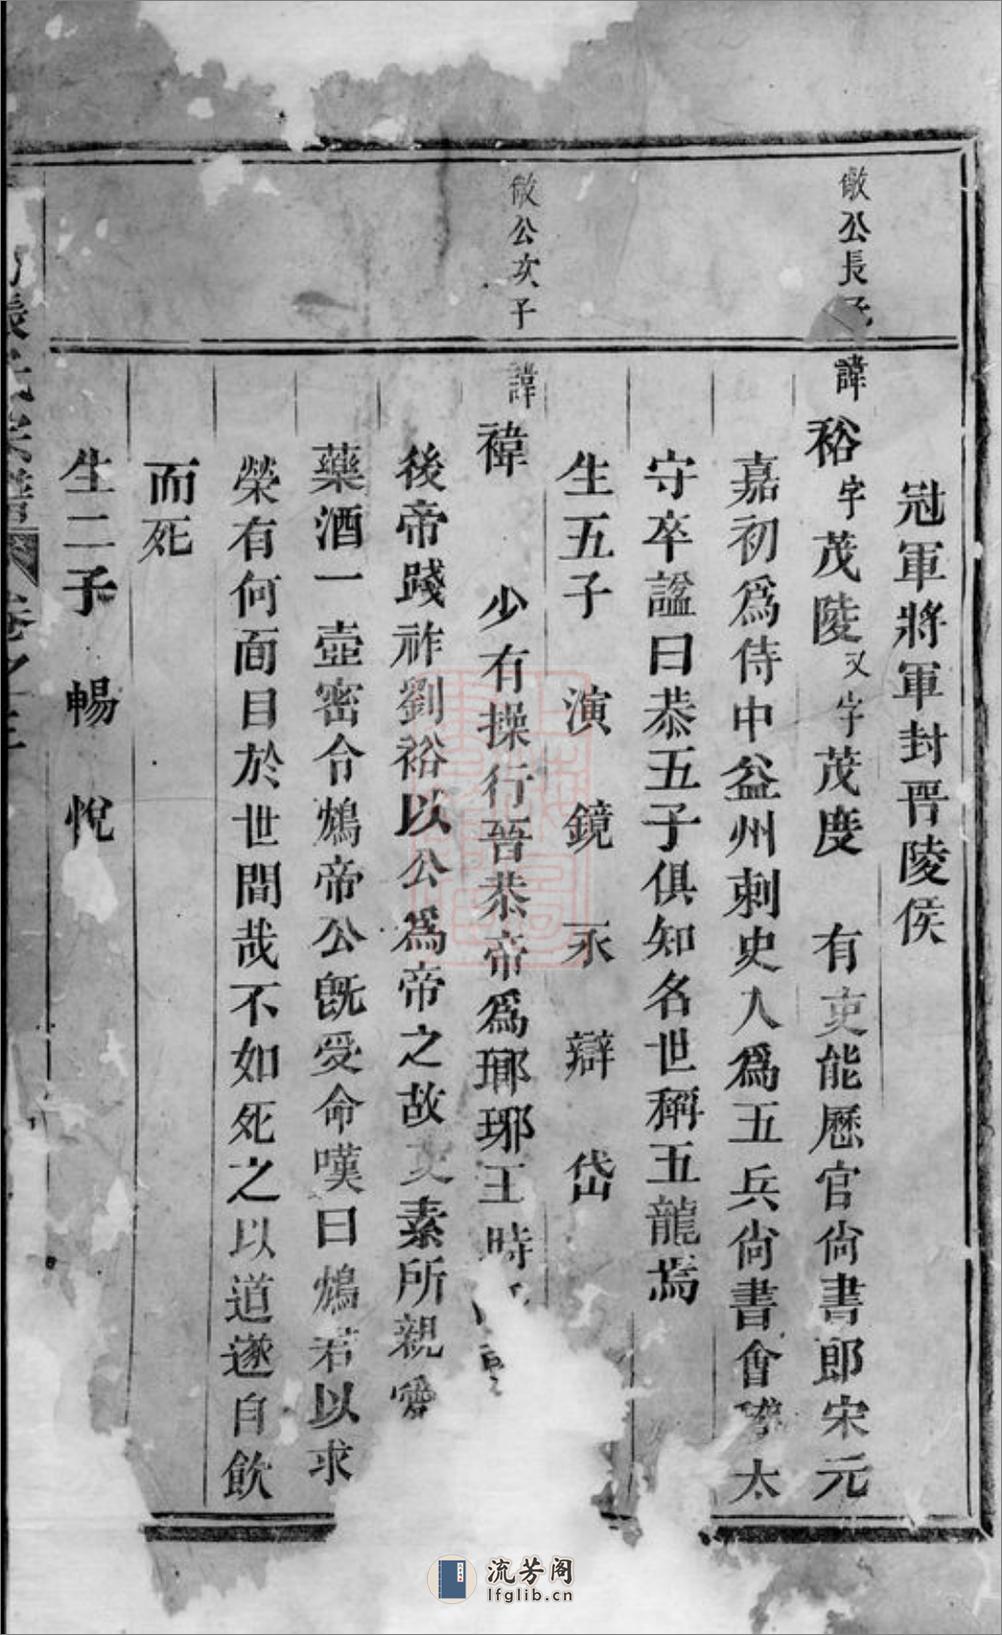 冠軍將軍封晋陵侯
敞公長子
諱裕字茂陵又字茂度　有吏能歷官尙書郎宋元
嘉初爲侍中益州刺史入爲五兵尙書會 太
守卒諡曰恭五子俱知名世稱五龍焉
生五子　演　鏡　永　辯　岱
敞公次子
諱褘　少有操行晉恭帝爲瑯琊王時
後帝踐祚劉裕以公爲帝之故吏素所親愛
藥酒一壺密令鴆帝公旣受命嘆曰鴆若以求
榮有何面目於世間哉不如死之以道遂自飲
而死
生二子　暢　悅
張氏宗譜　卷之
流芳阁
lfglib.cn